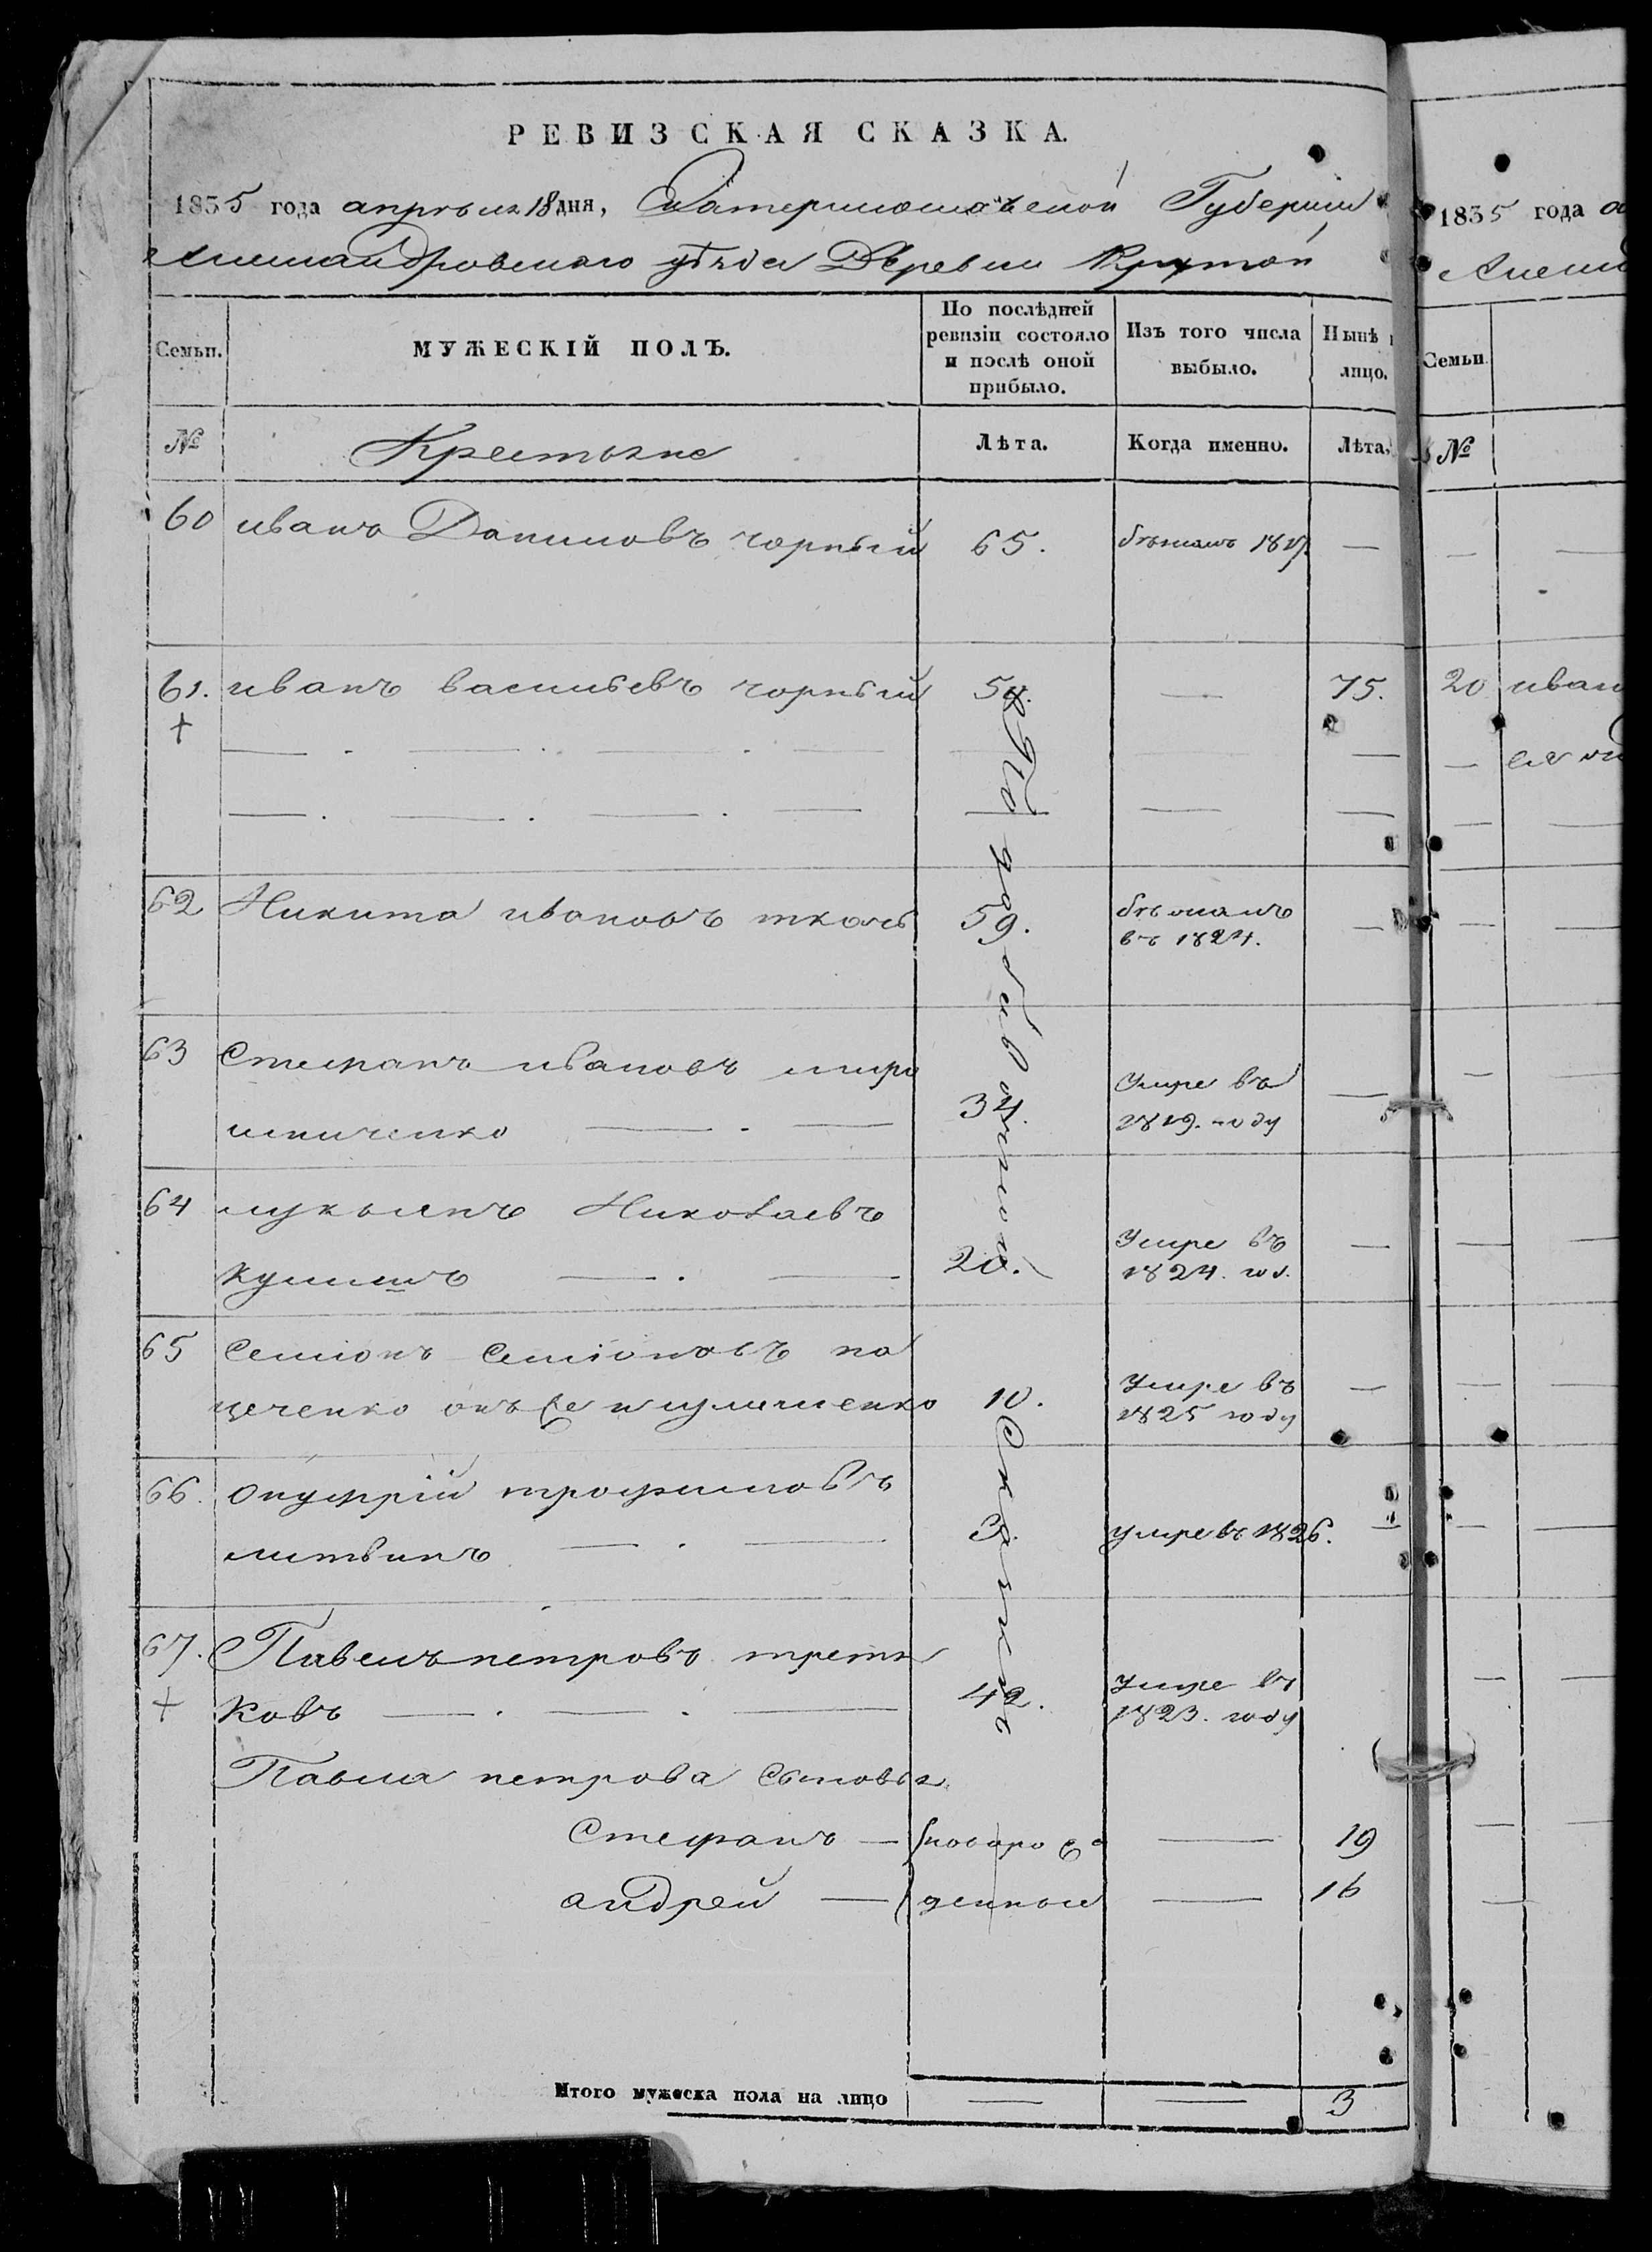 РЕВИЗСКАЯ СКАЗКА.
1835 года апрѣля 18 дня, Екатеринославской Губерніи
Александровскаго уѣзда Деревни Крутой
Семьи. МУЖЕСКІЙ ПОЛЪ. По послѣдней ревизіи состояло и послѣ оной прибыло. Изъ того числа выбыло. Нынѣ лицо.
№ Крестьяне Лѣта. Когда именно. Лѣта.
60 иванъ Даниловъ чорный 65. бѣжалъ —
61. иванъ васильевъ чорный — 75.
62 Никита ивановъ ткачь 59. бѣжалъ
въ 1824. —
63 Стефанъ ивановъ миро
шниченко — 34. Умре въ
1819. году —
64 лукьянъ Николаевъ
— 20. Умре въ
1824. год. —
65 Семіонъ Семіоновъ
10. Умре въ
1825 году —
66. онуфрій трофимовъ
литвинъ — 3. умре въ 1826. —
67. Павелъ петровъ третя
ковъ — 42. умре въ
1823. году
Павла петрова сыновья
Стефанъ — новоро — 19
андрей — денные — 16
Итого мужеска пола на лицо — — 3
1835 года
Семьи
№
20 иван